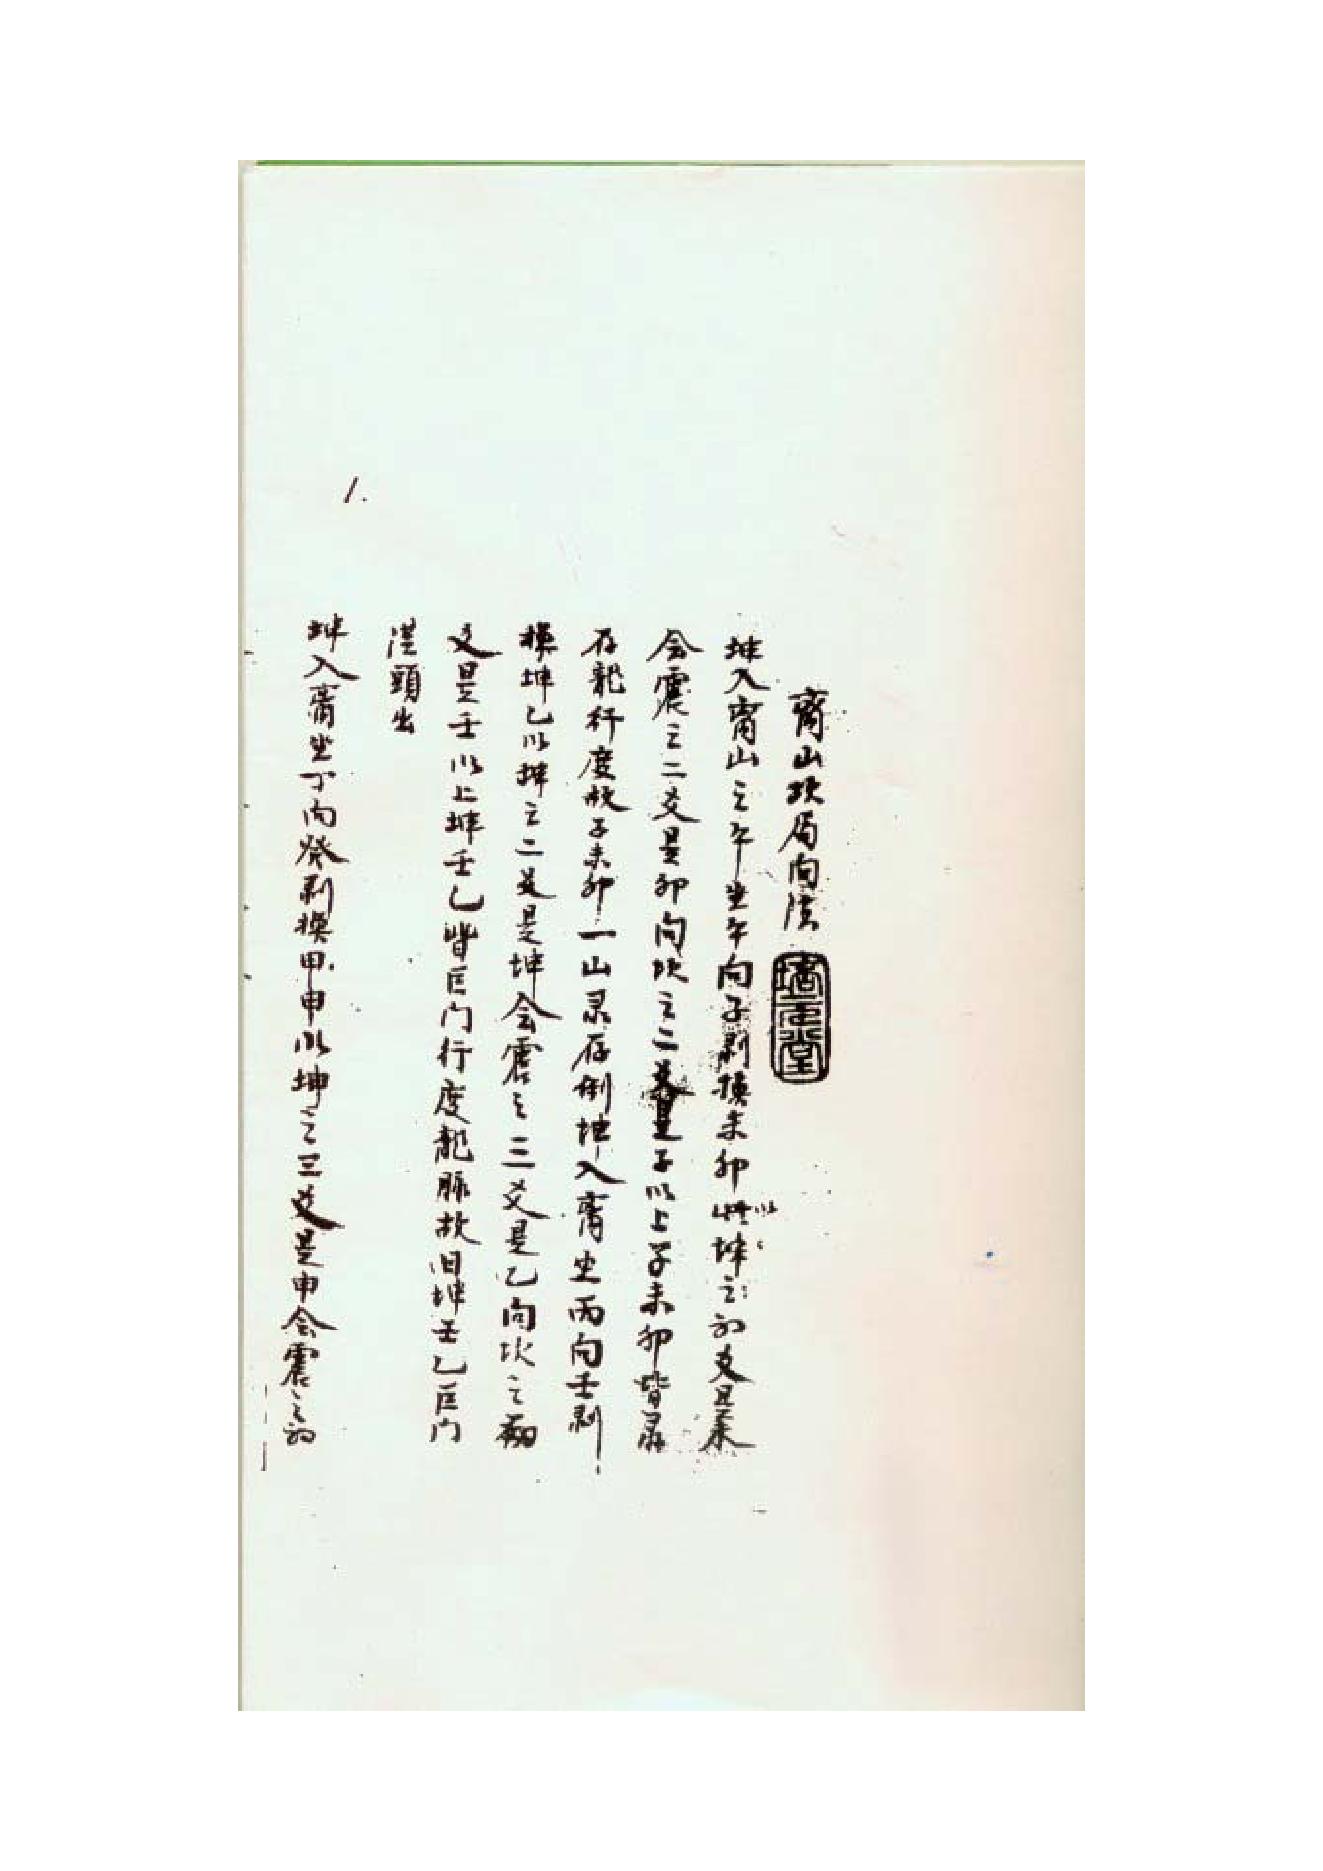 离山坎局向法
坤入离山之午坐午向子剥換未卯以坤之初爻是未
会震之二爻是卯向坎之二爻是子以上子未卯皆录
存龍行度故子未卯一山录存倒坤入离坐丙向壬剥
換坤乙以坤之二爻是坤会震之三爻是乙向坎之初
爻是壬以上坤壬乙皆巨门行度龍脉故曰坤壬乙巨门
從頭出
坤入离坐丁向癸剥換甲申以坤之三爻是申会震之初
1.